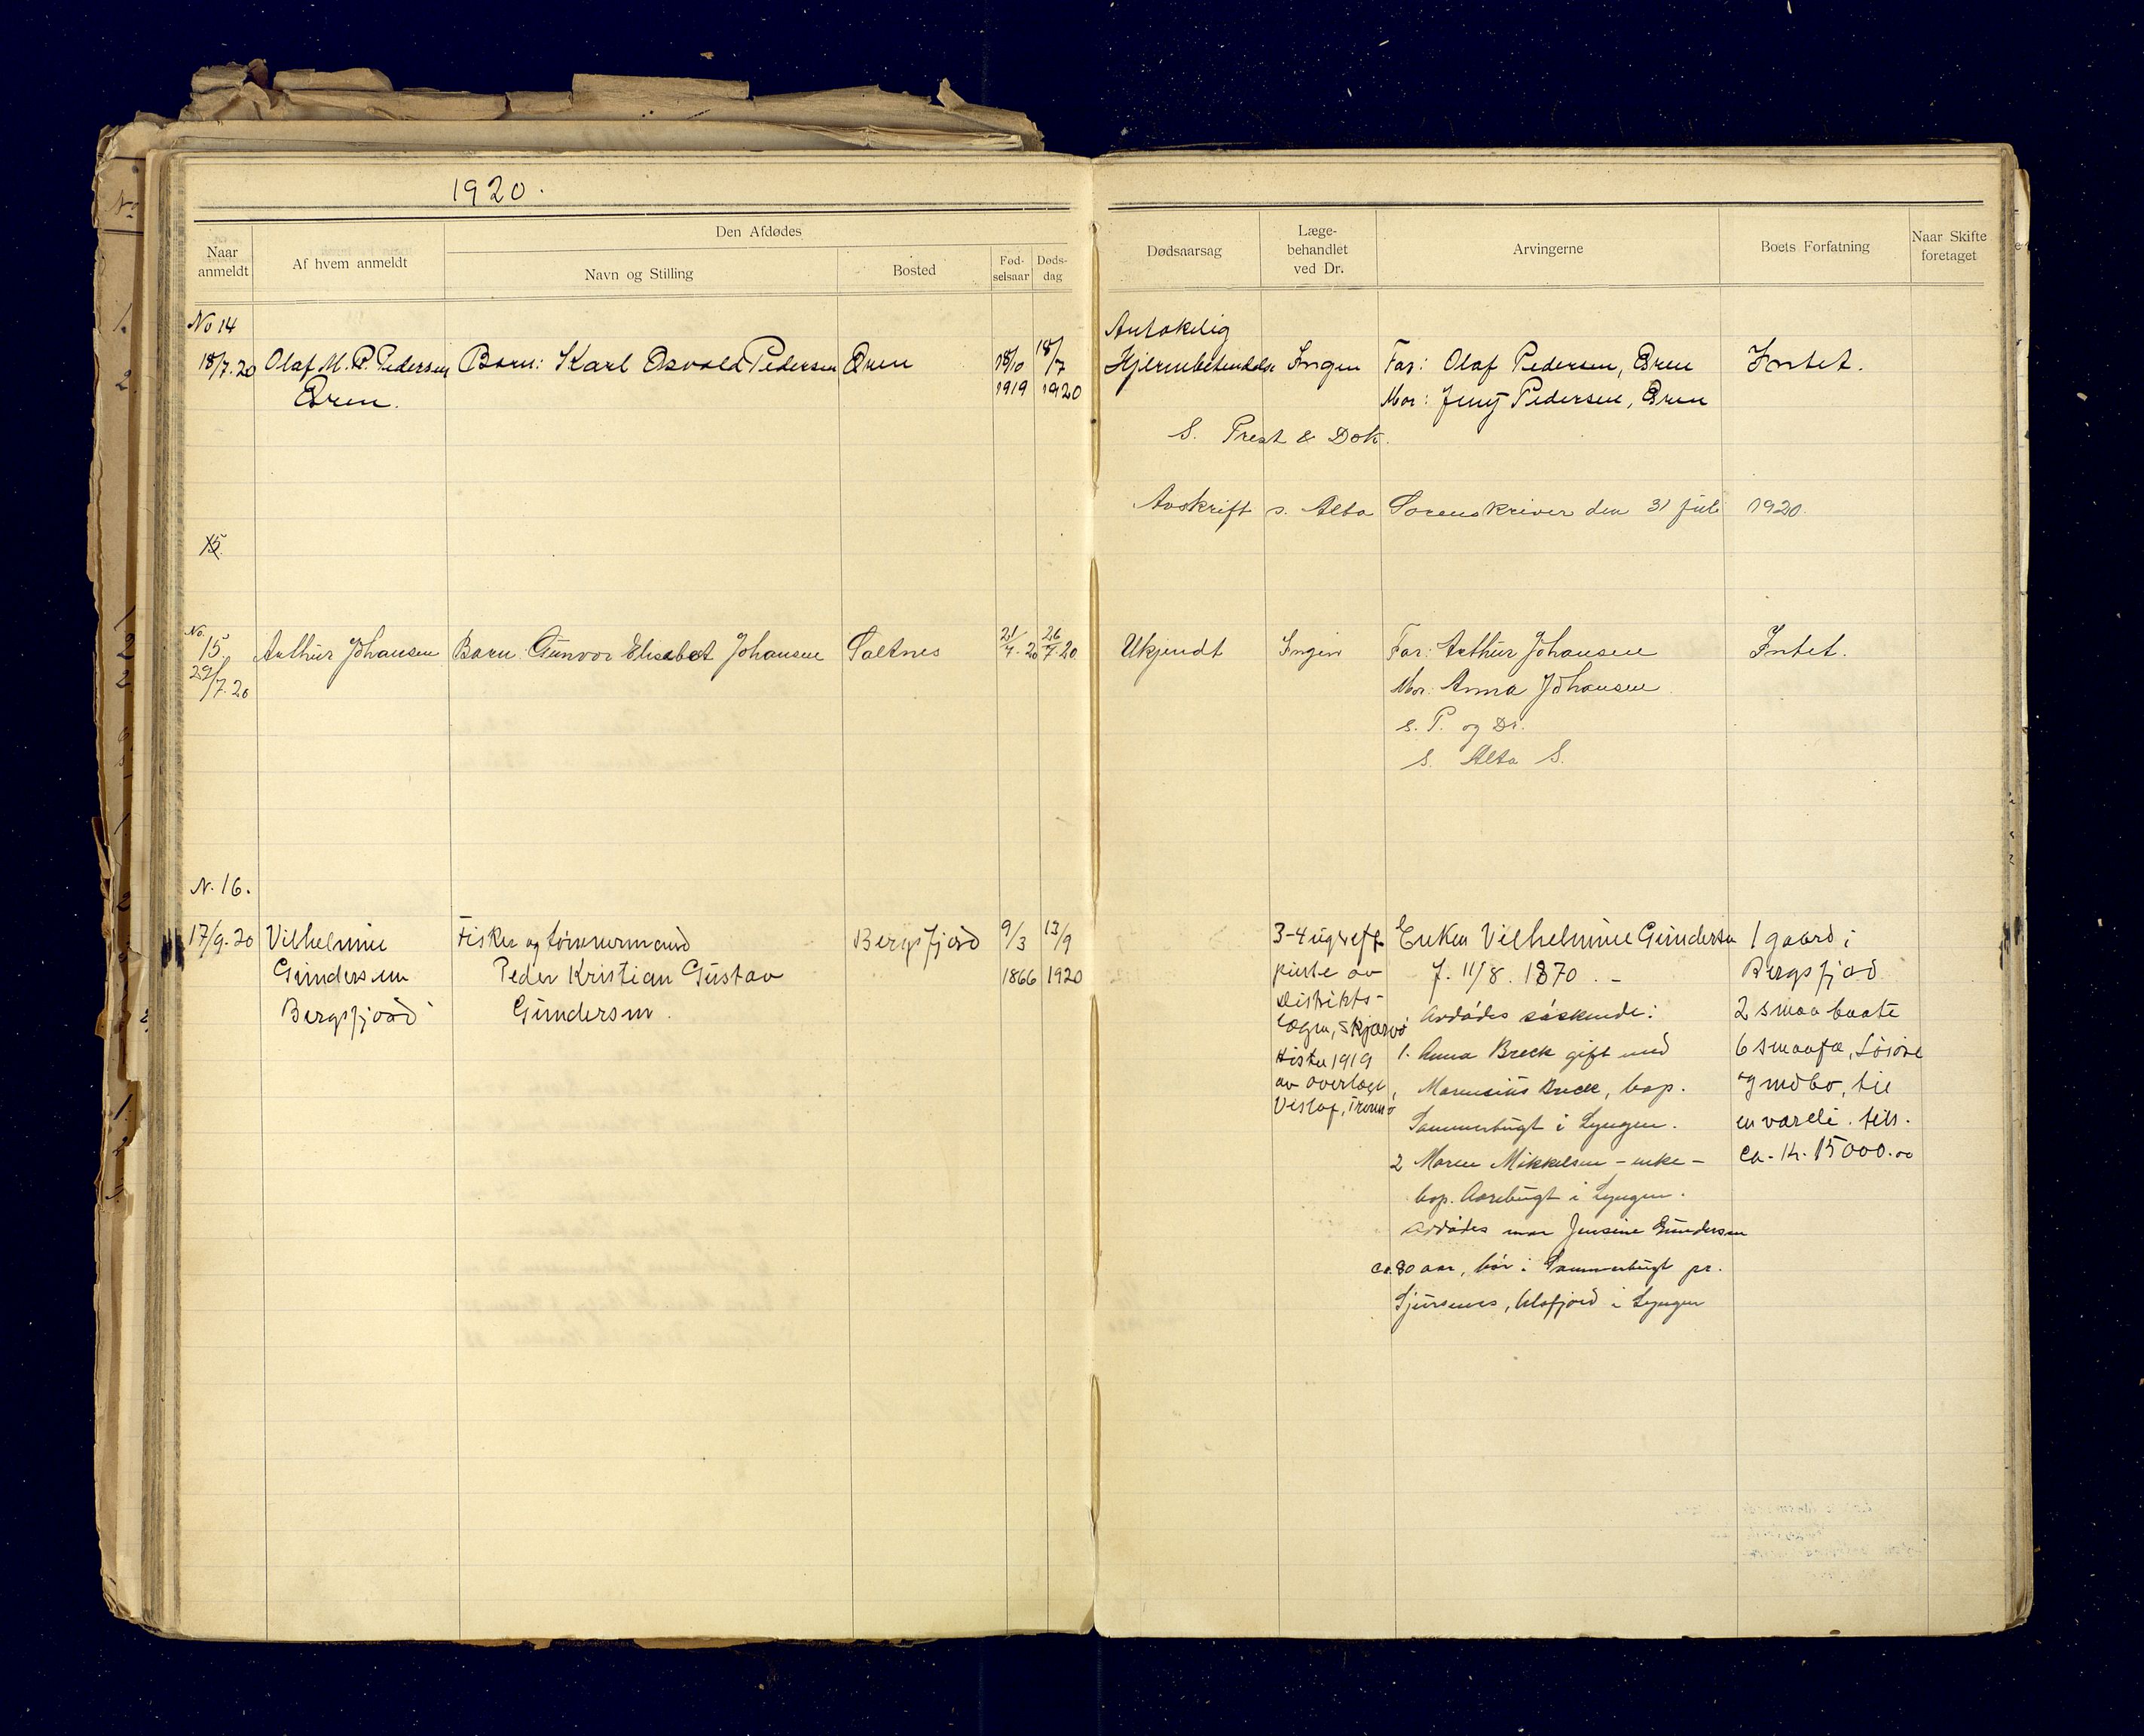 1920.
Naar anmeldt
Af hvem anmeldt
Den Afdødes
Navn og Stilling
Bosted
Fød-selsaar
Døds-dag
Dødsaarsag
Læge-behandlet ved Dr.
Arvingerne
Boets Forfatning
Naar Skifte foretaget
No 14
18/7.20 Olaf M. P. Pedersen Barn: Karl Osvald Pedersen Øren 18/10 18/7
Øren. 1919 1920
Antakelig
Hjernebetendelse Ingen Far: Olaf Pedersen, Øren Intet.
Mor: Jenny Pedersen, Øren
S. Prest & Dok.
Avskrift s. Alta Sorenskriver den 31 juli 1920.
15
No.
15. Arthur Johansen Barn Gunvor Elisabet Johansen Saltnes 21/7.20 26/7 20
29/7.20
Ukjendt Ingen Far: Arthur Johansen Intet.
Mor: Anna Johansen
s. P. og Dr.
S. Alta S.
N. 16.
17/9.20 Vilhelmine Fisker og tømmermand Bergsfjord 9/3 13/9
Gundersen Peder Kristian Gustav 1866 1920
Bergsfjord Gundersen.
3-4
av
Distrikts-
læge, Skjærvø
Sisste 1919
av overlæge
Tromsø
Enken Vilhelmine Gundersen
f. 11/8. 1870. -
Avdødes søskende:
1. Anna Breck gift med
Breck, bop.
i Lyngen.
2 Maren Mikkelsen - enke -
bop. i Lyngen.
Avdødes mor Jensine Gundersen
ca. 80 aar, bor i pr.
i Lyngen
1 gaard i
Bergsfjord
2 smaa baate
6 smaafæ, løsøre
og indbo, til
en værdi. tils.
ca. kr. 15000.00